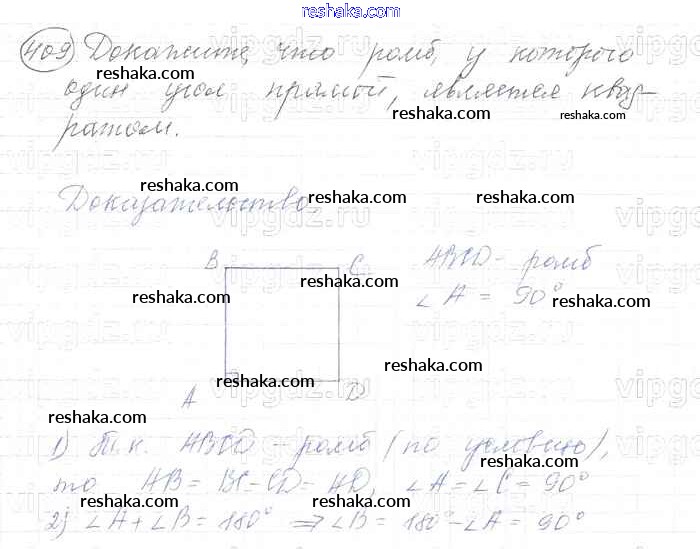 reshaka.com
409 Докажите, что ромб, у которого
reshaka.com
reshaka.com
один угол прямой, является квад-
reshaka.com
reshaka.com
ратом.
reshaka.com
reshaka.com
reshaka.com
Доказательство.
B C ABCD - ромб
reshaka.com
∠A = 90°
reshaka.com
reshaka.com
reshaka.com
A D
reshaka.com
1) Т.к. ABCD - ромб (по условию),
reshaka.com
reshaka.com
то AB = BC = CD = AD, ∠A = ∠C = 90°
reshaka.com
reshaka.com
2) ∠A + ∠B = 180° ⇒ ∠B = 180° - ∠A = 90°
reshaka.com